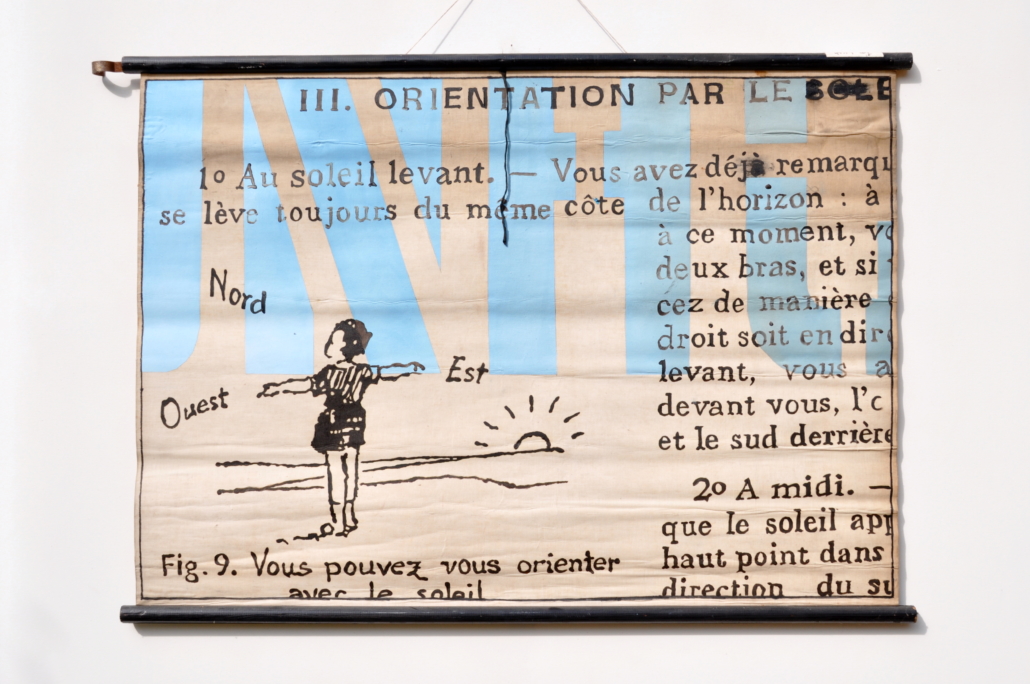 III. ORIENTATION PAR LE SOLE
1º Au soleil levant. — Vous avez déjà remarqu
se lève toujours du même côte de l'horizon : à
à ce moment, vo
deux bras, et si
cez de manière
droit soit en dire
levant, vous a
devant vous, l'o
et le sud derrière
2º A midi. —
que le soleil app
haut point dans
direction du su
Nord
Est
Ouest
Fig. 9. Vous pouvez vous orienter
avec le soleil